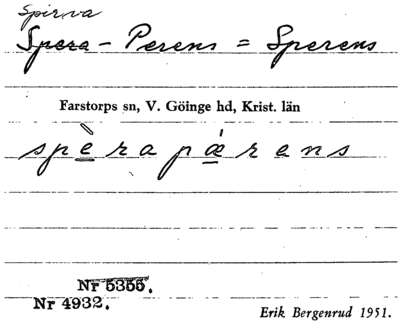 Spirva
Spera - Perens = Sperens
Farstorps sn, V. Göinge hd, Krist. län
spèrapǽrens
Nr 5355.
Nr 4932.
Erik Bergenrud 1951.